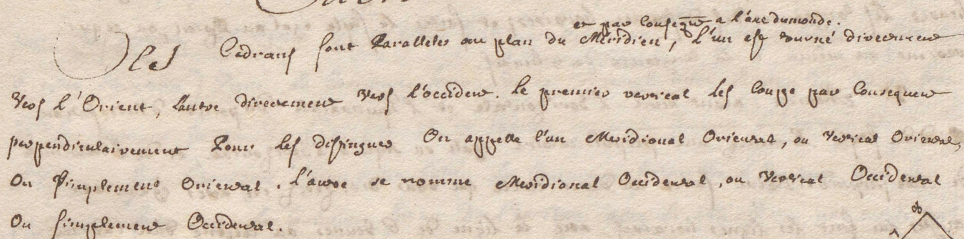 et par conseqt a l'axe du monde.
Ces Cadrans sont Paralleles au plan du Meridien, l'un est tourné directement
vers l'Orient, l'autre directement vers l'occident. Le premier vertical les coupe par consequent
perpendiculairement Pour les distinguer On appelle l'un Meridional Oriental, ou vertical Oriental,
Ou simplement Oriental. l'autre se nomme Meridional Occidental, ou vertical Occidental
Ou simplement Occidental.